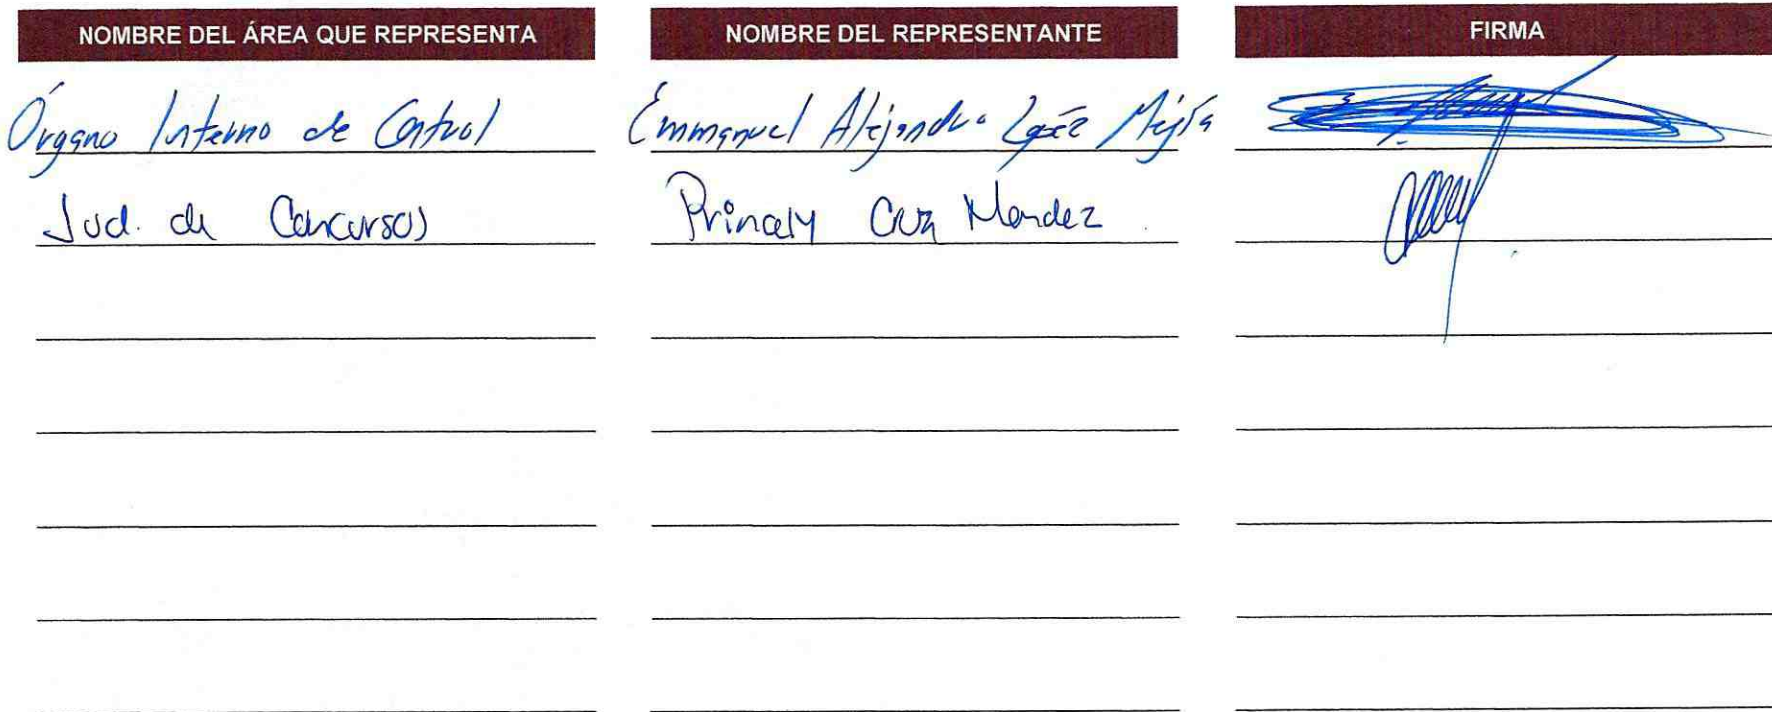 NOMBRE DEL ÁREA QUE REPRESENTA NOMBRE DEL REPRESENTANTE FIRMA
Órgano Interno de Control Emmanuel Alejandro López Mejía
Jud. de Concursos Princely Cruz Mendez